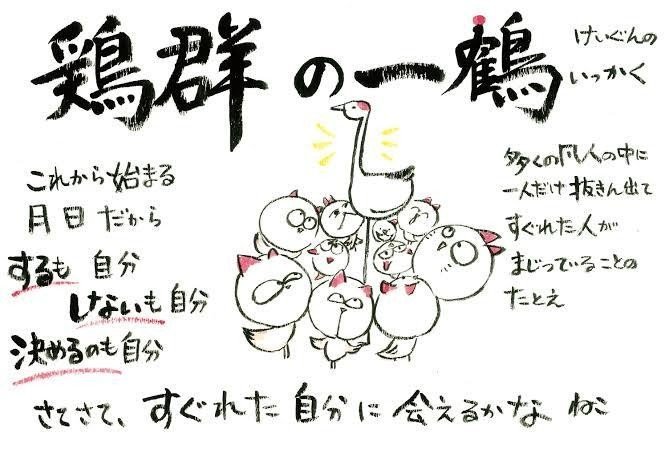 鶏群の一鶴
けいぐんの
いっかく
多くの凡人の中に
一人だけ抜きん出て
すぐれた人が
まじっていることの
たとえ
これから始まる
月日だから
するも 自分
しないも自分
決めるのも自分
さてさて、すぐれた自分に会えるかな ねこ